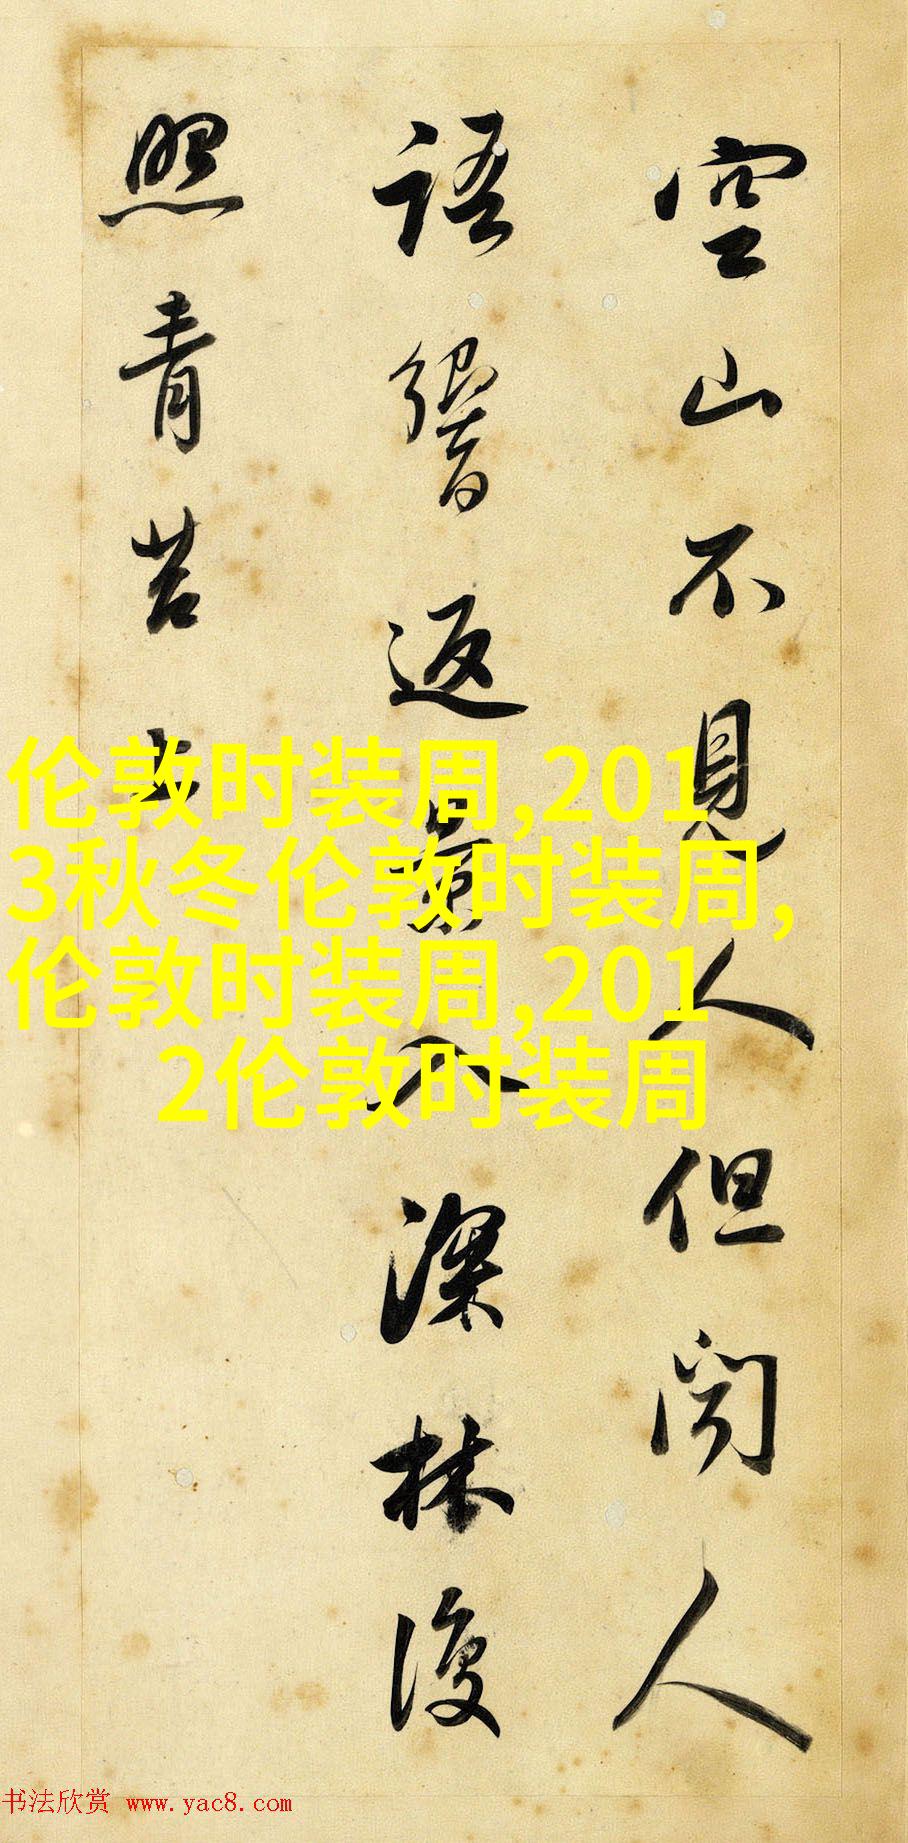 空山不見人但聞人
語響返景入深林復
照青苔上
伦敦时装周,201
3秋冬伦敦时装周,
伦敦时装周,201
2伦敦时装周
书法欣赏 www.yac8.com